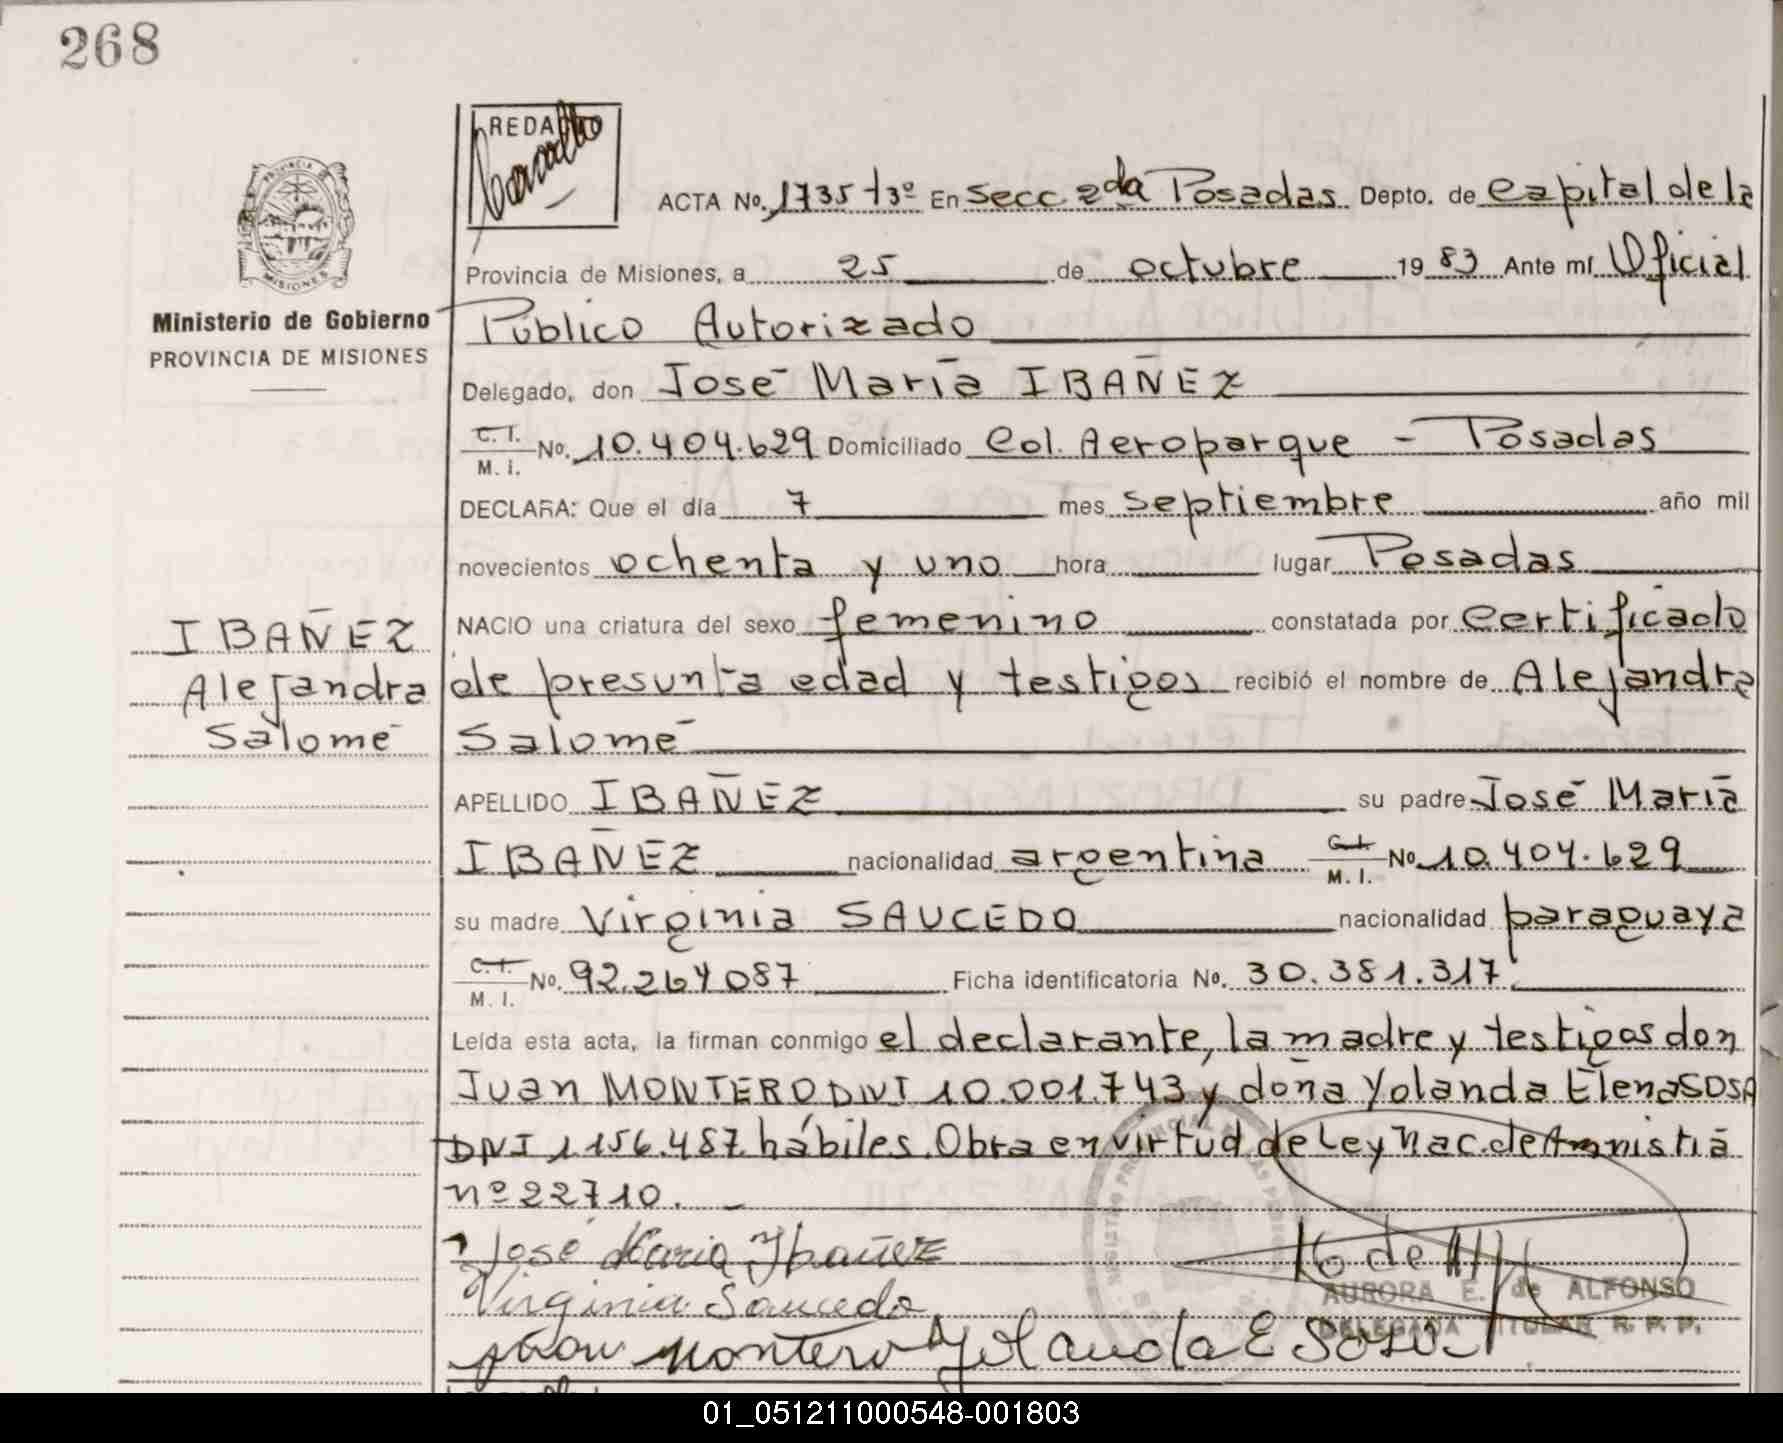 268
REDA
ACTA No. 1735 t3º En Secc 2da Posadas Depto. de Capital de la
Provincia de Misiones, a 25 de octubre 1983 Ante mí Oficial
Público Autorizado
Delegado, don José María IBAÑEZ
C. I. M. I. No. 10.404.629 Domiciliado Col. Aeroparque - Posadas
DECLARA: Que el día 7 mes septiembre año mil
novecientos ochenta y uno hora lugar Posadas
NACIO una criatura del sexo femenino constatada por Certificado
de presunta edad y testigos recibió el nombre de Alejandra
Salomé
APELLIDO IBAÑEZ su padre José María
IBAÑEZ nacionalidad argentina C. I. M. I. No 10.404.629
su madre Virginia SAUCEDO nacionalidad paraguaya
C. I. M. I. No. 92.264 087 Ficha identificatoria No. 30.381.317.
Leída esta acta, la firman conmigo el declarante, la madre y testigos don
Juan MONTERO DNI 10.001.743 y doña Yolanda Elena SOSA
DNI 1 156.487 hábiles. Obra en virtúd de Ley Nac. de Amnistiá
nº 22710.
José María Ybañez
Virginia Saucedo
Juan Montero Yolanda E Sosa
AURORA E. de ALFONSO
DELEGADA TITULAR R. P. P.
PROVINCIA DE
MISIONES
Ministerio de Gobierno
PROVINCIA DE MISIONES
IBAÑEZ
Alejandra
Salomé
01_051211000548-001803